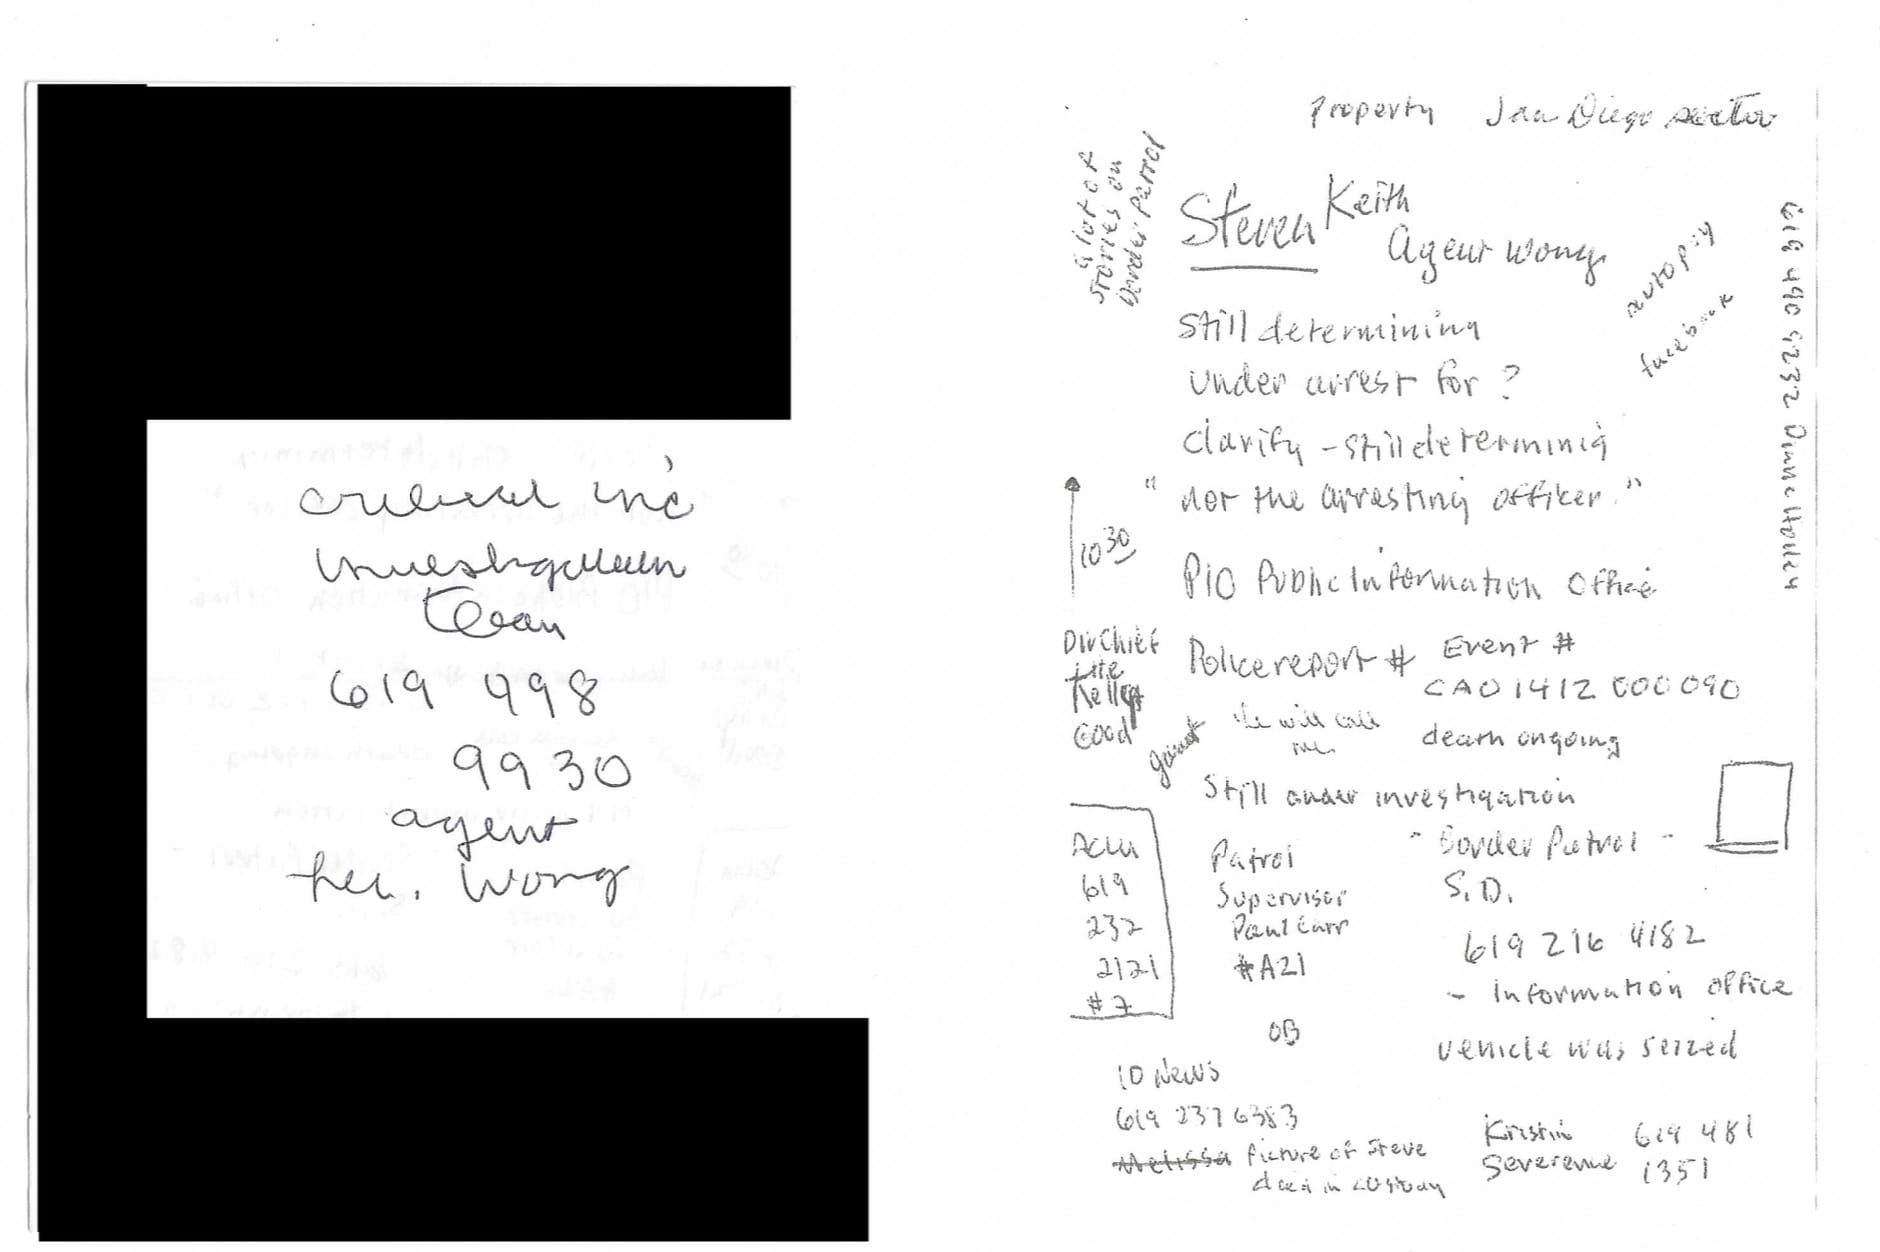 inc
Investigation
Team
619 998
9930
agent
Wong
Property San Diego sector
a lot of
stories on
Border Patrol
Steven Keith
Agent Wong
autopsy
facebook
619 490 9232 Dianne
Still determining
under arrest for ?
clarify - still determinig
" not the arresting officer."
10 30
PIO Public Information Office
Div Chief
Kelley
Good
Police report # Event #
CAO 1412 000 090
he will call
me
death ongoing
Still under investigation
ACLU
619
232
2121
#7
Patrol
Supervisor
Paul Carr
#A21
- Border Patrol -
S.D.
619 216 4182
- Information office
OB
vehicle was seized
10 News
619 237 6383
Melissa Picture of Steve
died in custody
Kristin 619 481
Severence 1351